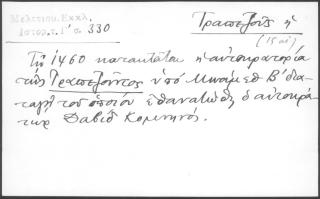 Μελετίου. Εκκλ.
Ιστορ. τ. Γ' σ. 330
Τραπεζοῦς ἡ
(15 αἰ)
Τῷ 1460 καταλύεται ἡ αὐτοκρατορία
τῆς Τραπεζοῦντος ὑπό Μωάμεθ Β' δια-
ταγῇ τοῦ ὁποίου ἐθανατώθη ὁ αὐτοκρά-
τωρ Δαβίδ Κομνηνός.